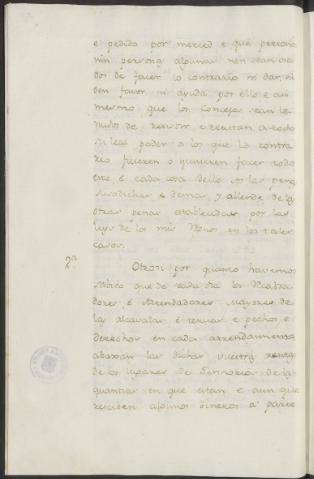 e pedido por merced e que persona
nin persona algunas non sean osa
dos de facer lo contrario ni dar, ni
den favor, ni ayuda por ello e asi
mesmo que los Concejos sean te
nudos de resistir e resistan a todo
su leal poder a los que lo contra
rio ficieren o quisieren facer todo
esto, e cada cosa dello so las penas
susodichas e demas, y allende de las
otras penas establecidas por las
leyes de los mis Rnos en los tales
casos.
2ª
Otrosi por quanto havemos
visto que de cada dia los Recabda
dores é Arrendadores mayores de
las alcavalas, é tercias e pechos e
derechos en cada arrendamiento
abaxan las dichas vuestras rentas
de los lugares de Señorios de las
quantias en que estan, e aun que
reciben algunos dineros a parte